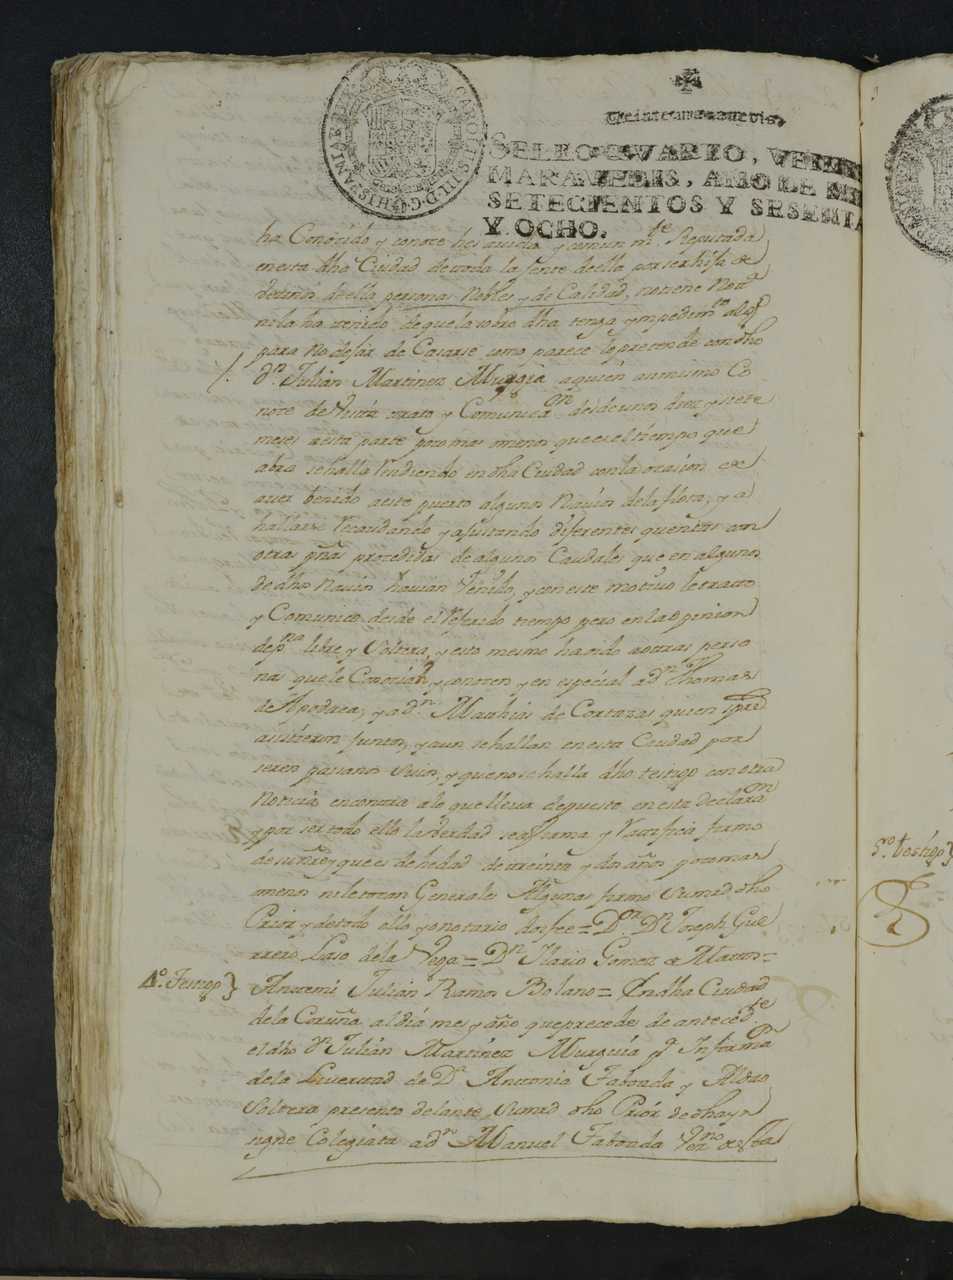 CAROLUS III D.G. HISPANIAR. REX
Veinte maravedis.
SELLO QVARTO, VEINTE
MARAVEDIS, AÑO DE MIL
SETECIENTOS Y SESENTA
Y OCHO.
ha Conocido y conoce he comun mte. Reputada
en esta dha Ciudad de toda la Jente de ella por ser hija de
de ella personas Nobles y de Calidad, no tiene Notª
ni la ha tenido de que la sobre dha tenga ympedimto algº
para No dejar de Casarse como parece lo pretende con dho
Dn. Julián Martinez Murgia a quien asimismo Co
noze de Vista trato y Comunicaon desde unos diez y siete
meses a esta parte poco mas o menos que es el tiempo que
abra se halla Residiendo en dha Ciudad con la ocasion de
aver benido a este puerto algunos Navios de la flota, y a
hallarse Recaudando y ajustando diferentes quentas con
otras procedidas de algunos Caudales que en algunos
de dhos Navios havian Venido, y con este motivo le trato
y Comunico desde el Referido tiempo pero en la opinion
de libre y Soltero, y esto mesmo ha oido a otras perso
nas que le Conocian, y conocen y en especial a Dn Thomas
de Apodaca, y a Dn. Mathias de Cortazar quien
asistieron juntos, y aun se hallan en esta Ciudad por
seren paisanos Suios, y que no se halla dho testigo con otra
Noticia en contra a lo que lleva depuesto en esta declaraon
y por ser todo ello la Verdad se afirma y Ratifica firmo
de su nre y que es de hedad de treinta y dos años poco mas
o menos ni le tocan Generales Algunas firmo Su mrd dho
Prior y de todo ello yo notario doi fee = Dn. Dn Joseph Gue
rrero Laso de la Vega = Dn Ilario Gomez de =
Antemi Julián Ramos Bolano = En dha Ciudad
4º. Testigo}
de la Coruña al dia mes y año que precede de antecedte
el dho Dn Julián Martinez Murguía pª Informaon
de la Livertad de Dª Antonia Taboada y Aldao
Soltera presento delante Su mrd dho Prior de dha yn
signe Colegiata a dn Manuel Taboada Vezno de esta
5º. testigo}